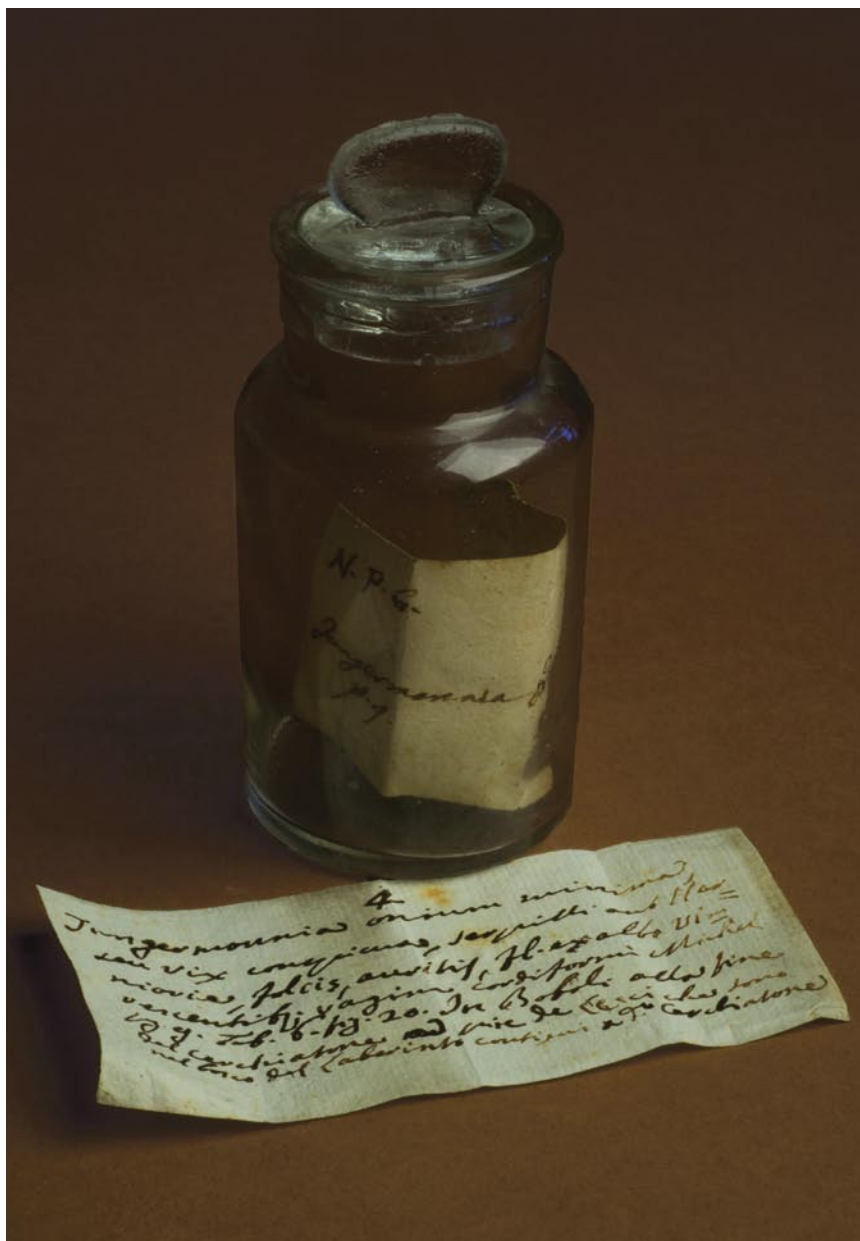 N. P. G.
Jungermannia
p. 9.
4
Jungermannia omnium minima
seu vix conspicua, serpilli aut Her=
niariæ, foliis, auritis, fl. ex albo vi=
rescentibus, Vagina cordiformi Michel
p. 9. Tab. 6. fig. 20. In Boboli alla fine
Del cerchiatone de Lecci che sono
nel del Laberinto contigui a Cerchiatone